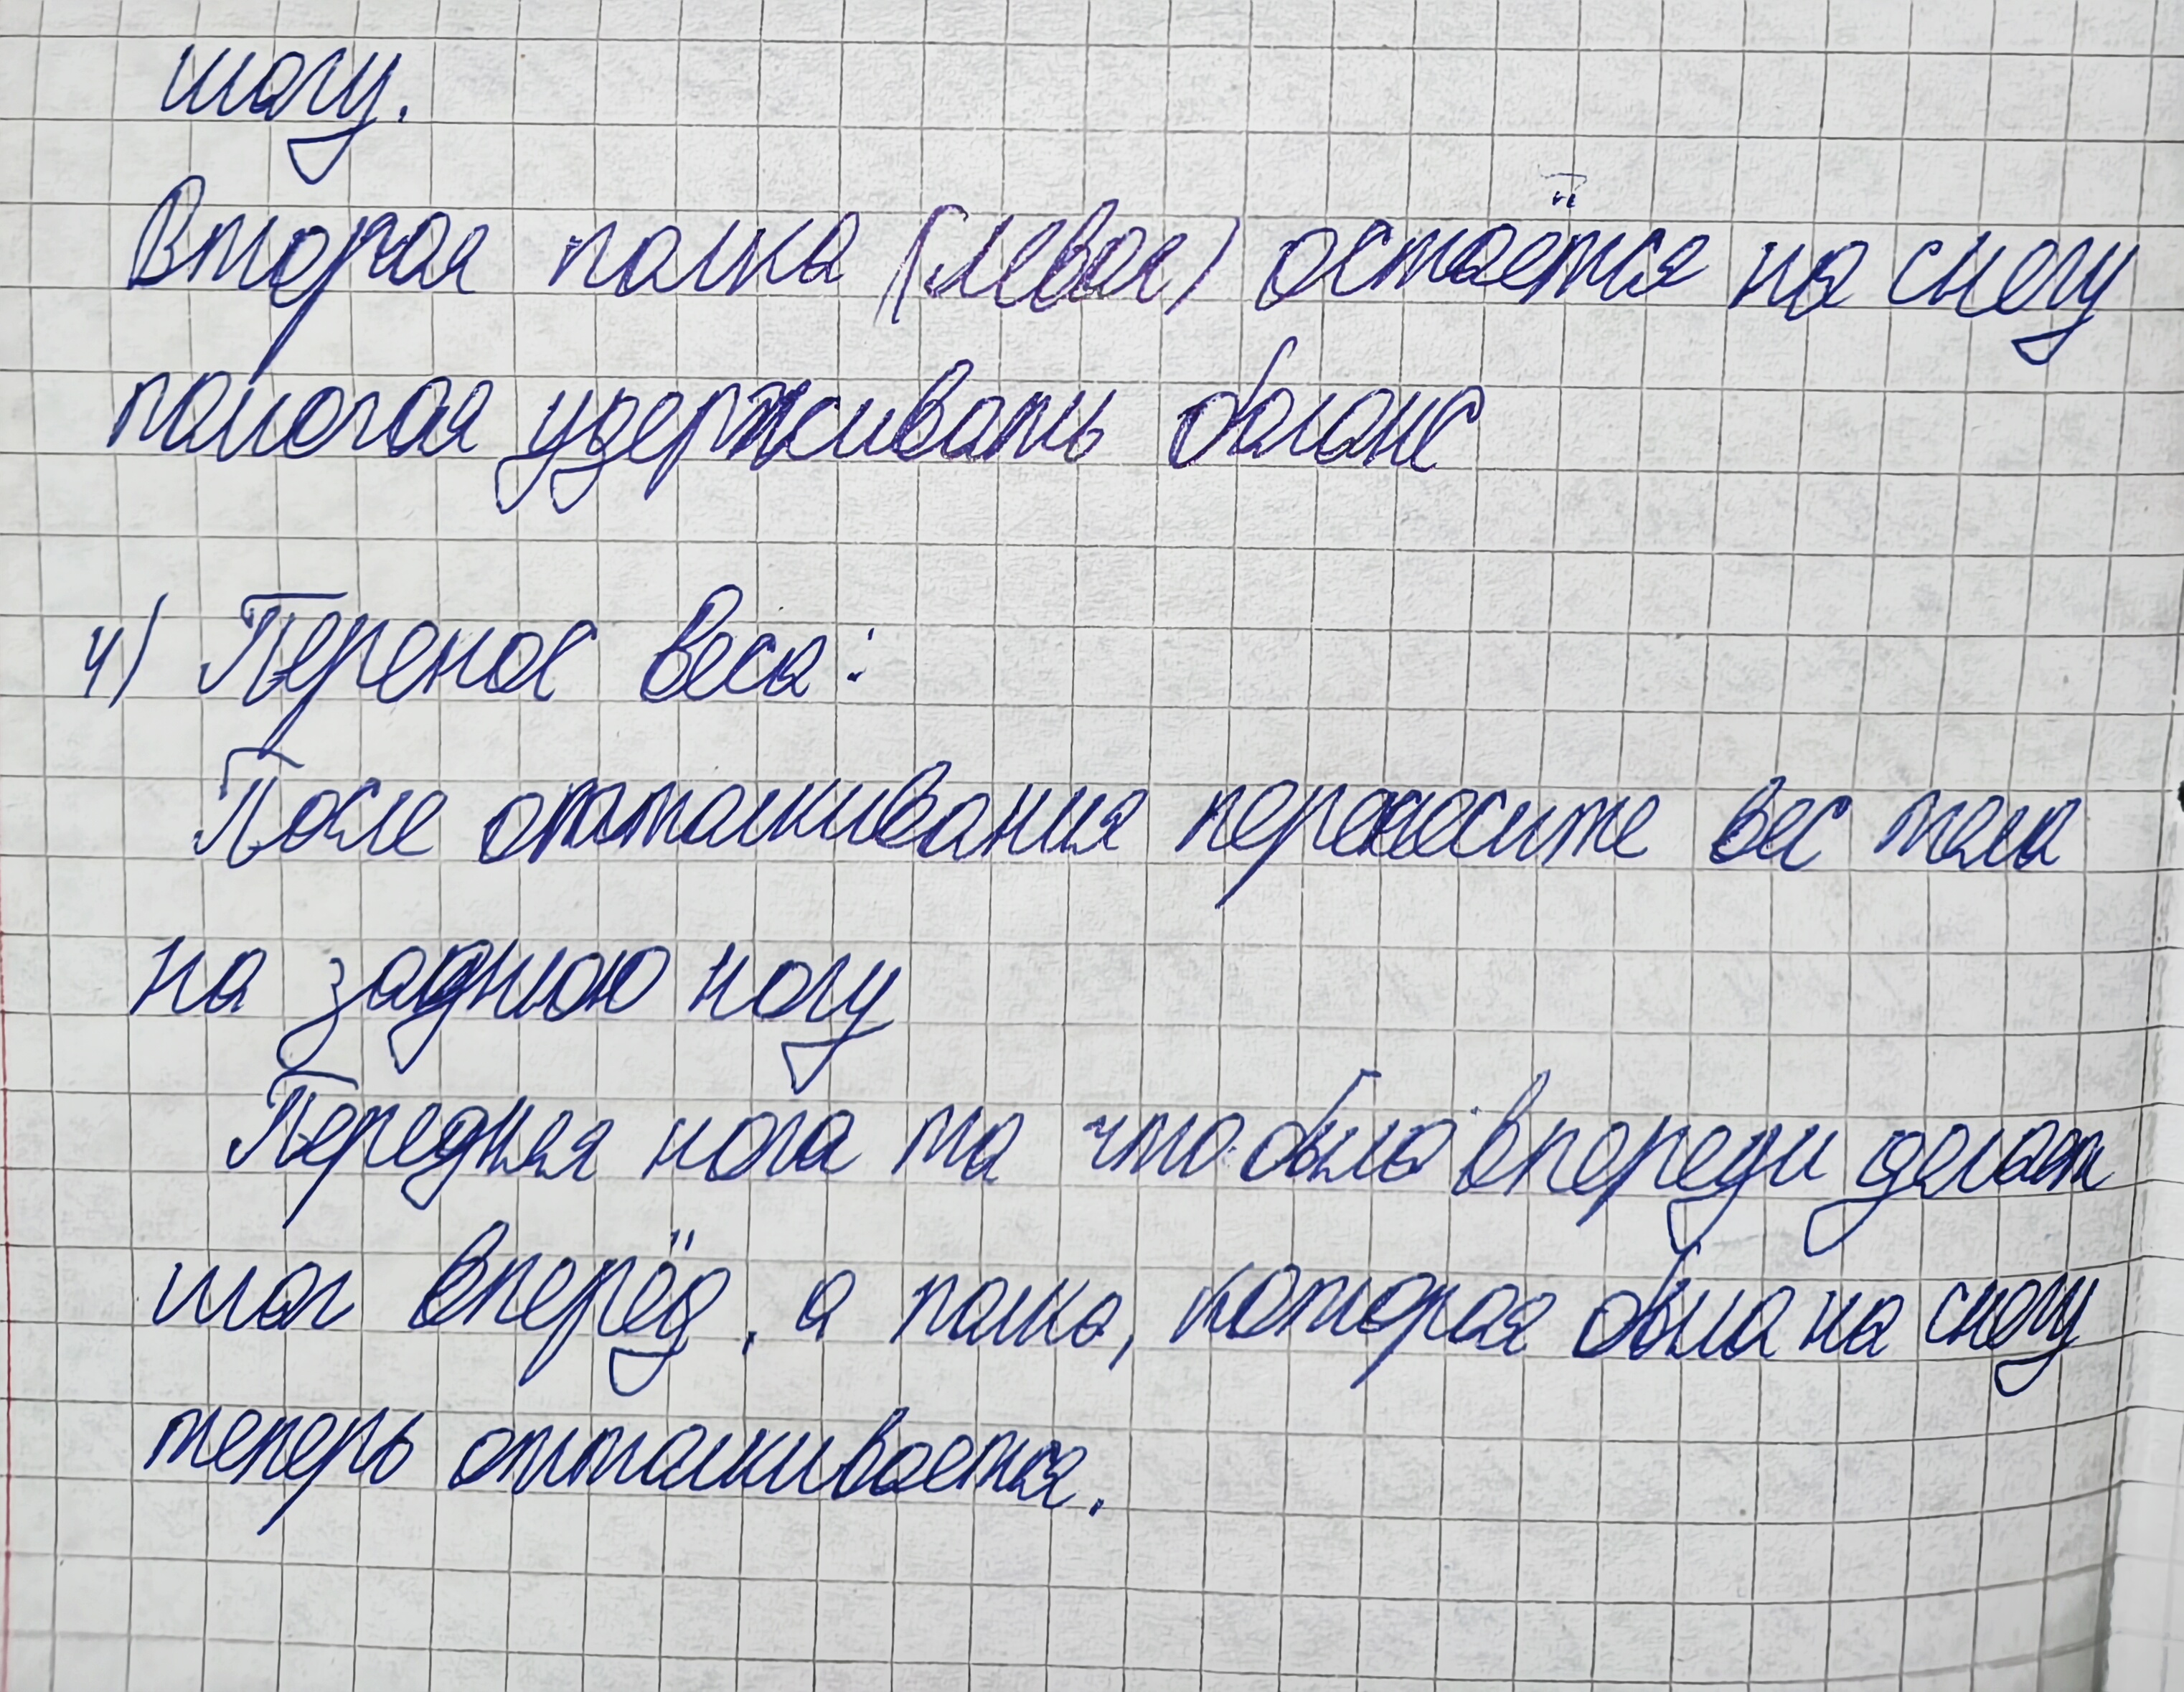 шагу.
Вторая палка (левая) остаётся на снегу
помогая удерживать баланс
4) Перенос веса:
После отталкивания перенесите вес тела
на заднюю ногу
Передняя нога та что была впереди делает
шаг вперёд, а палка, которая была на снегу
теперь отталкивается.